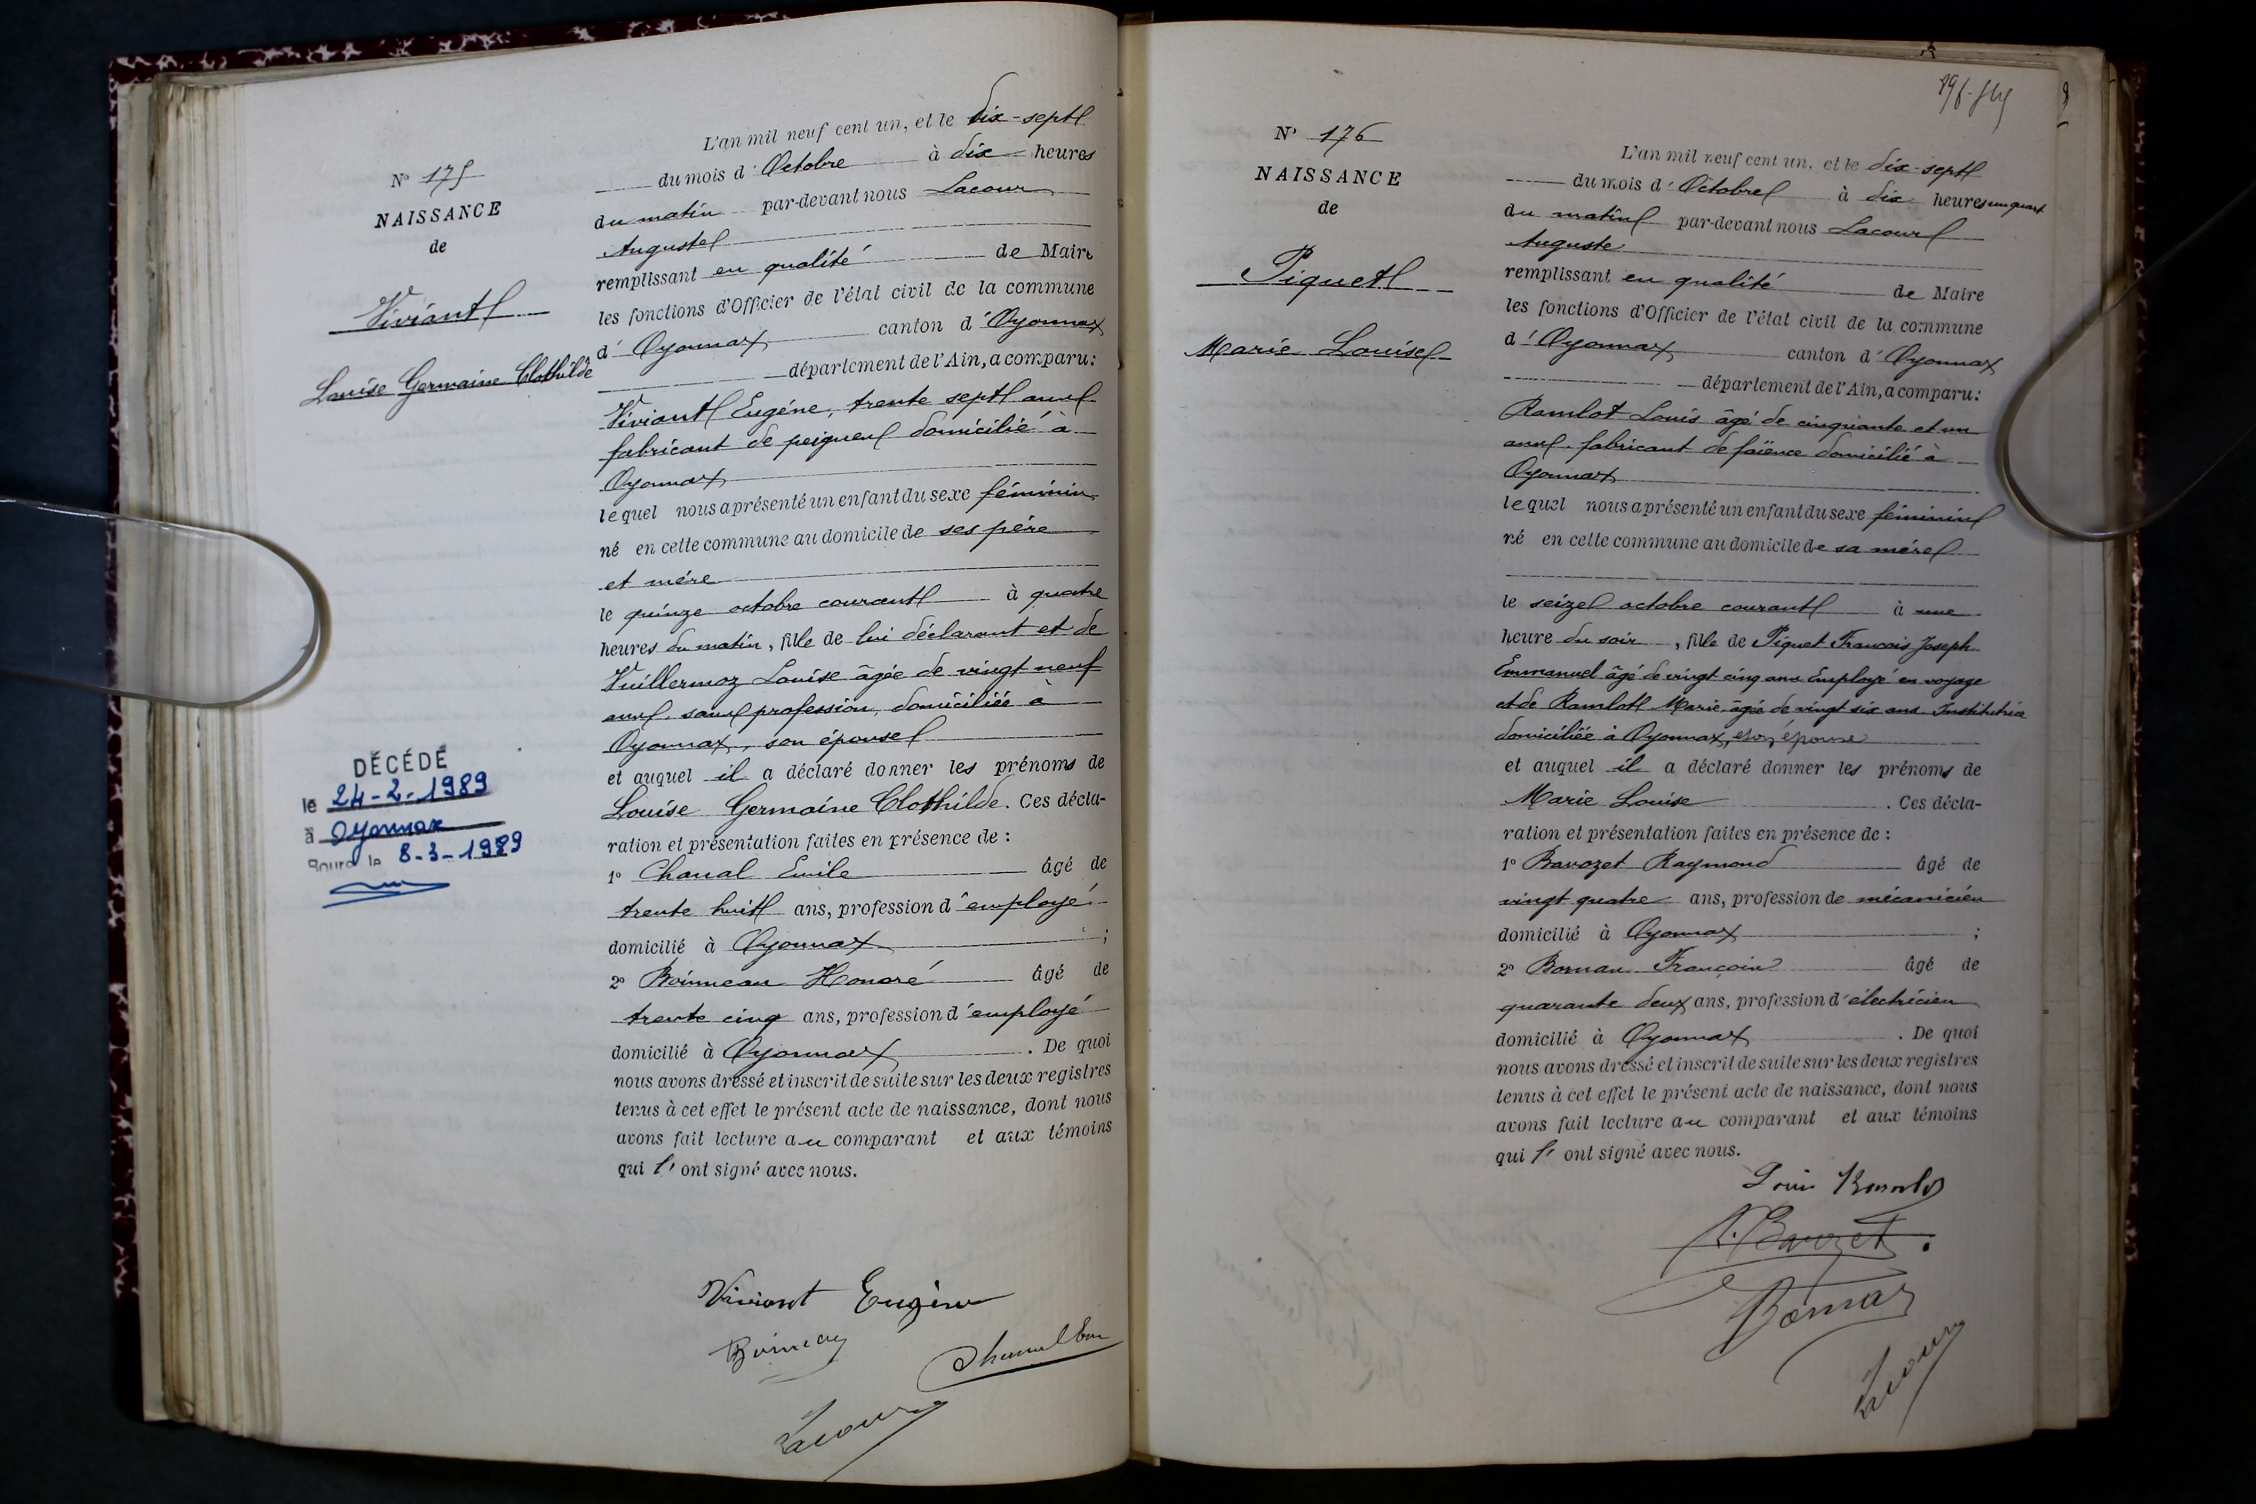 N° 175
NAISSANCE
de
Viviant
Louise Germaine Clothilde
DÉCÉDÉ
le 24-2-1989
à Oyonnax
Bourg le 8-3-1989
L'an mil neuf cent un, et le dix-sept
du mois d' Octobre à dix heures
du matin par-devant nous Lacour
Auguste
remplissant en qualité de Maire
les fonctions d'Officier de l'état civil de la commune
d' Oyonnax canton d' Oyonnax
département de l'Ain, a comparu:
Viviant Eugéne, trente sept ans
fabricant de peignes domicilié à
Oyonnax
lequel nous a présenté un enfant du sexe féminin
né en cette commune au domicile de ses pére
et mére
le quinze octobre courant à quatre
heures du matin, fille de lui déclarant et de
Vuillermoz Louise âgée de vingt neuf
ans sans profession, domiciliée à
Oyonnax, son épouse
et auquel il a déclaré donner les prénoms de
Louise Germaine Clothilde. Ces décla-
ration et présentation faites en présence de :
1° Chanal Emile âgé de
trente huit ans, profession d'employé
domicilié à Oyonnax ;
2° Boinneau Honoré âgé de
trente cinq ans, profession d'employé
domicilié à Oyonnax. De quoi
nous avons dressé et inscrit de suite sur les deux registres
tenus à cet effet le présent acte de naissance, dont nous
avons fait lecture au comparant et aux témoins
qui l' ont signé avec nous.
Viviant Eugène
Lacour
N° 176
NAISSANCE
de
Piquet
Marie Louise
L'an mil neuf cent un, et le dix-sept
du mois d' Octobre à dix heures un quart
du matin par-devant nous Lacour
Auguste
remplissant en qualité de Maire
les fonctions d'Officier de l'état civil de la commune
d' Oyonnax canton d' Oyonnax
département de l'Ain, a comparu:
Ramlot Louis âgé de cinquante et un
ans fabricant de faïence domicilié à
Oyonnax
lequel nous a présenté un enfant du sexe féminin
né en cette commune au domicile de sa mére
le seize octobre courant à une
heure du soir, fille de Piquet François Joseph
Emmanuel âgé de vingt cinq ans Employé en voyage
et de Ramlot Marie âgée de vingt six ans Institutrice
domiciliée à Oyonnax, son épouse
et auquel il a déclaré donner les prénoms de
Marie Louise. Ces décla-
ration et présentation faites en présence de :
1° Bavozet Raymond âgé de
vingt quatre ans, profession de mécanicien
domicilié à Oyonnax ;
2° Bornan François âgé de
quarante deux ans, profession d'électricien
domicilié à Oyonnax. De quoi
nous avons dressé et inscrit de suite sur les deux registres
tenus à cet effet le présent acte de naissance, dont nous
avons fait lecture au comparant et aux témoins
qui l' ont signé avec nous.
Louis Ramlot
Bavozet
Lacour